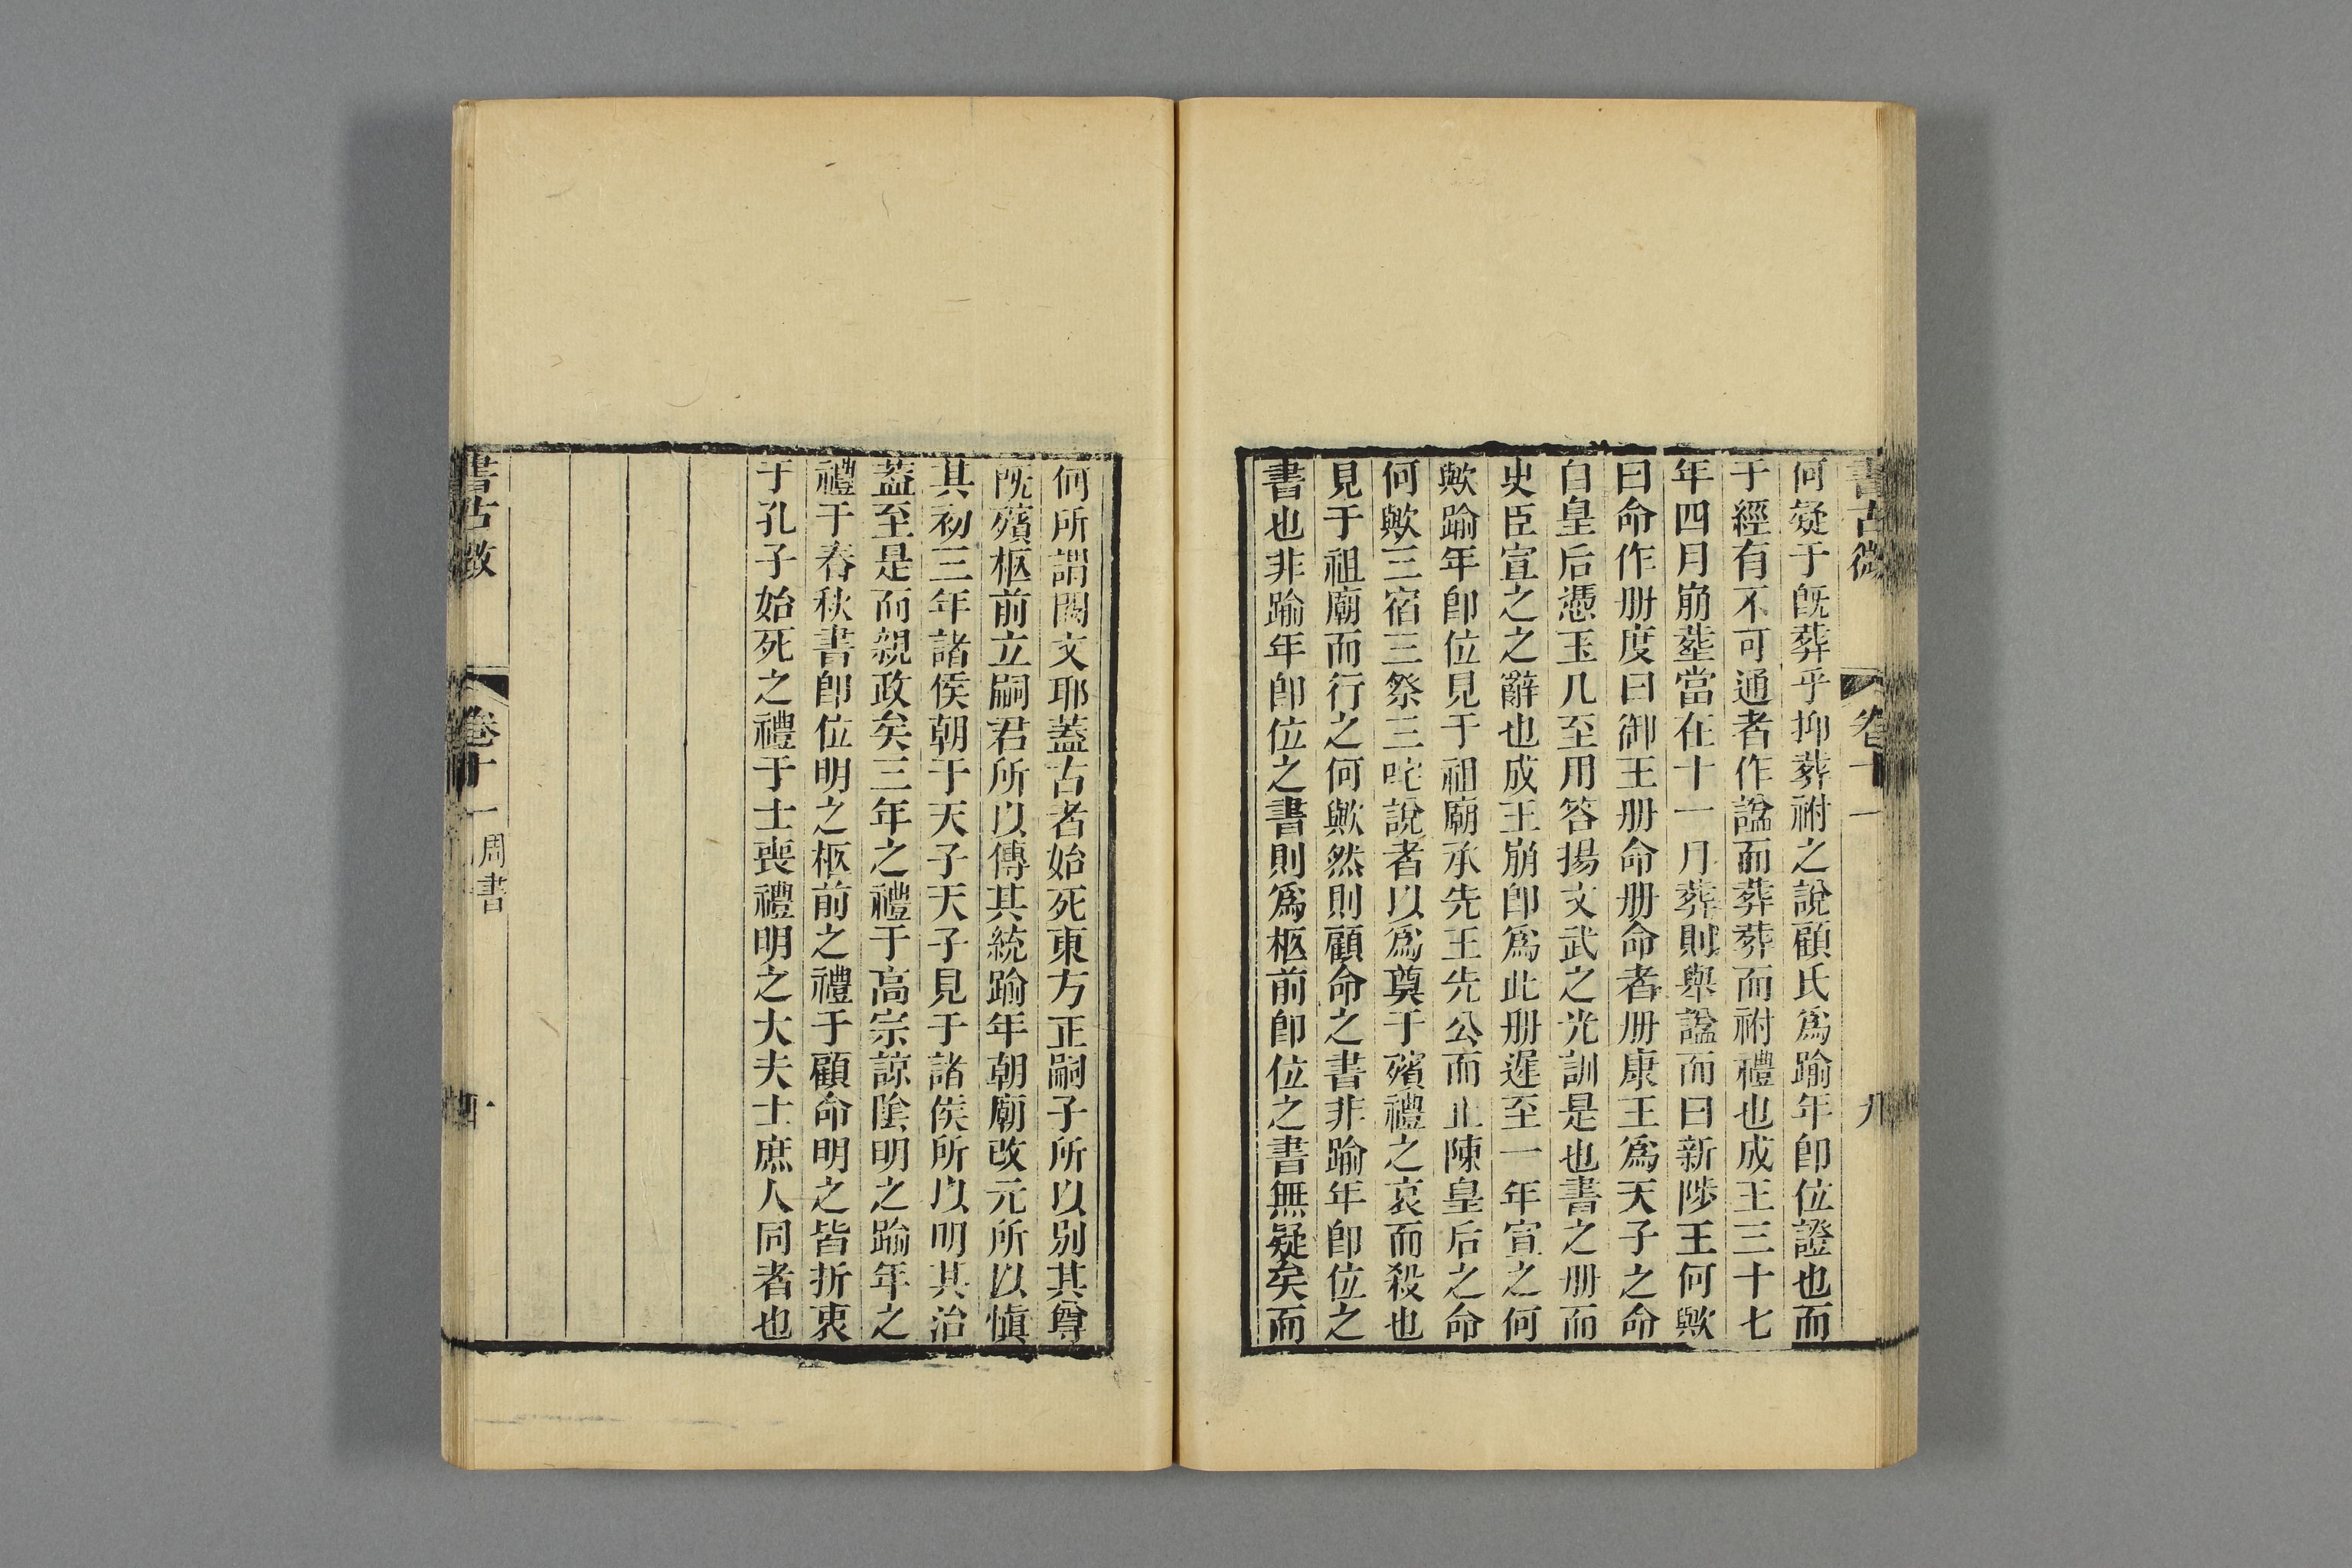 書古微 卷十一 九
何疑于旣葬乎抑葬祔之說顧氏爲踰年卽位證也而
于經有不可通者作諡而葬葬而祔禮也成王三十七
年四月崩塟當在十一月葬則舉諡而曰新陟王何歟
曰命作册度曰御王册命册命者册康王爲天子之命
自皇后憑玉几至用答揚文武之光訓是也書之册而
史臣宣之之辭也成王崩卽爲此册遲至一年宣之何
歟踰年卽位見于祖廟承先王先公而止陳皇后之命
何歟三宿三祭三咤說者以爲奠于殯禮之哀而殺也
見于祖廟而行之何歟然則顧命之書非踰年卽位之
書也非踰年卽位之書則爲柩前卽位之書無疑矣而
何所謂闕文耶蓋古者始死東方正嗣子所以別其尊
旣殯柩前立嗣君所以傳其統踰年朝廟改元所以愼
其初三年諸侯朝于天子天子見于諸侯所以明其治
蓋至是而親政矣三年之禮于高宗諒陰明之踰年之
禮于春秋書卽位明之柩前之禮于顧命明之皆折衷
于孔子始死之禮于士喪禮明之大夫士庶人同者也
書古微 卷十一 周書